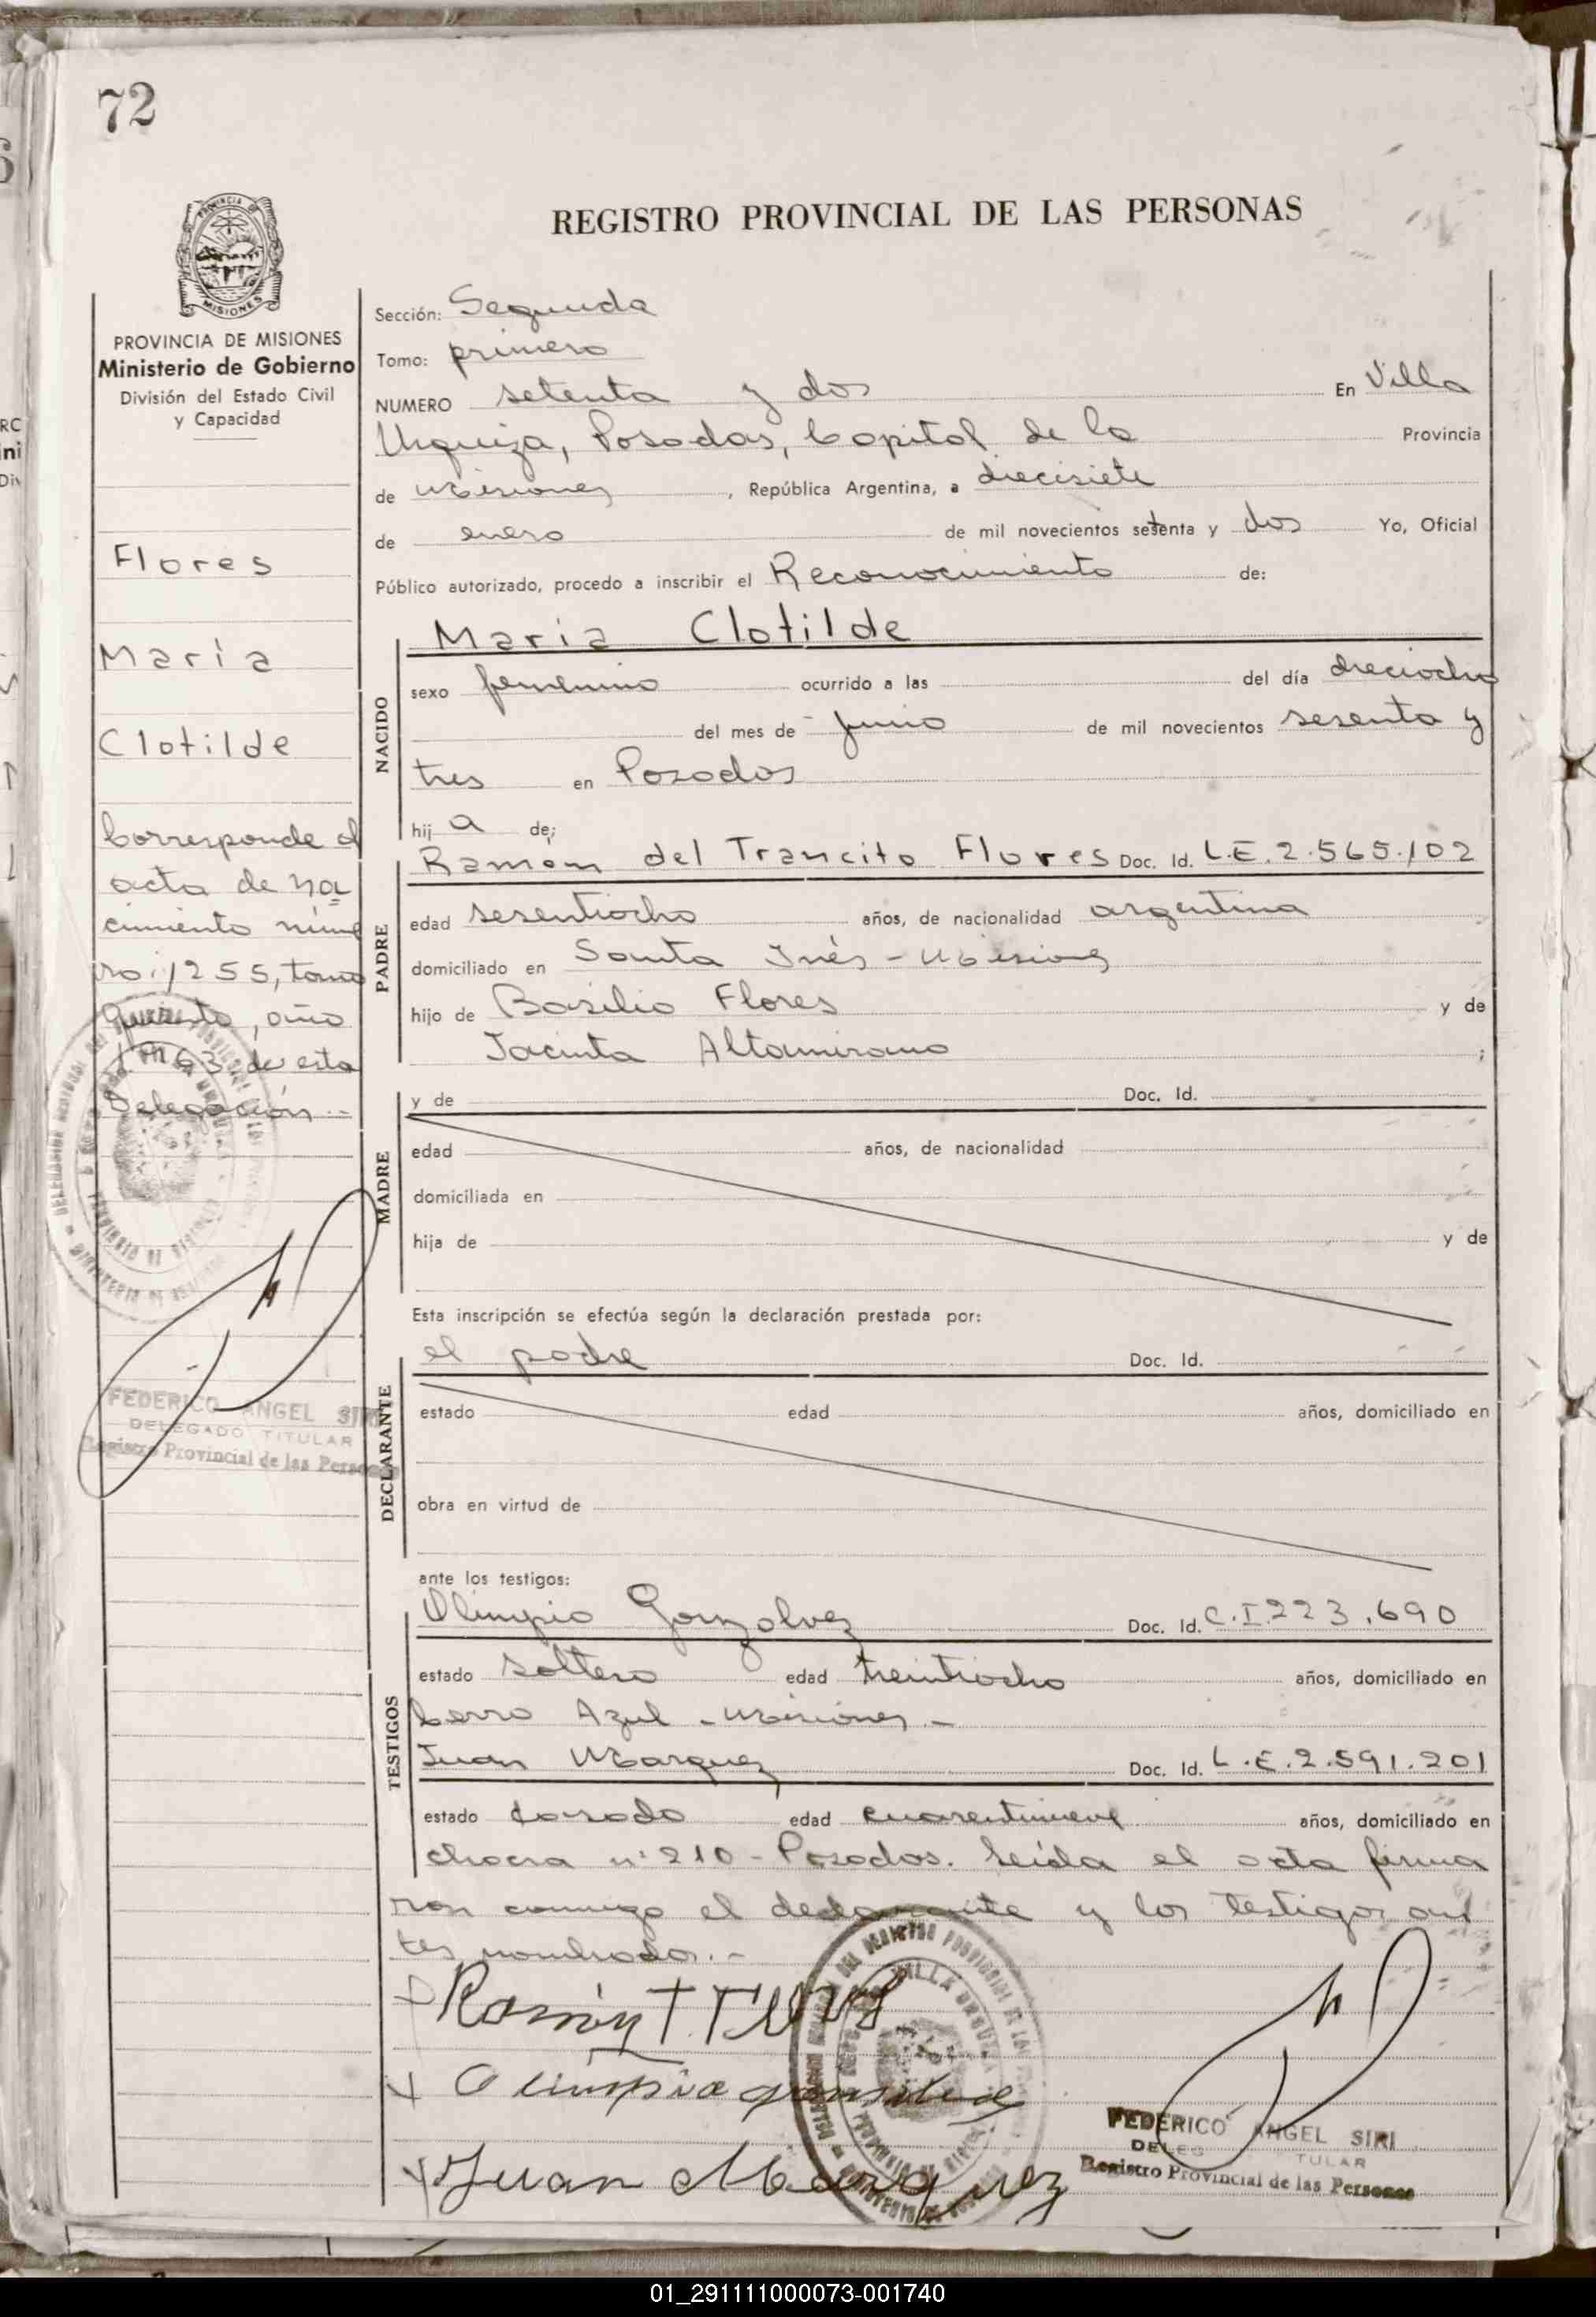 72
REGISTRO PROVINCIAL DE LAS PERSONAS
PROVINCIA DE
MISIONES
PROVINCIA DE MISIONES
Ministerio de Gobierno
División del Estado Civil
y Capacidad
Flores
María
Clotilde
Corresponde al
acta de na
cimiento núme
ro: 1255, tomo
Quinto, año
1963 de esta
Delegación.-
FEDERICO ANGEL SIRI
DELEGADO TITULAR
Registro Provincial de las Personas
Sección: Segunda
Tomo: primero
NUMERO setenta y dos En Villa
Urquiza, Posadas, Capital de la Provincia
de Misiones, República Argentina, a diecisiete
de enero de mil novecientos setenta y dos Yo, Oficial
Público autorizado, procedo a inscribir el Reconocimiento de:
NACIDO
María Clotilde
sexo femenino ocurrido a las del día dieciocho
del mes de junio de mil novecientos sesenta y
tres en Posadas
hij a de;
PADRE
Ramón del Trancito Flores Doc. Id. L.E. 2.565.102
edad sesentiocho años, de nacionalidad argentina
domiciliado en Santa Inés - Misiones
hijo de Basilio Flores y de
Jacinta Altamirano ;
MADRE
y de Doc. Id.
edad años, de nacionalidad
domiciliada en
hija de y de
Esta inscripción se efectúa según la declaración prestada por:
DECLARANTE
el padre Doc. Id.
estado edad años, domiciliado en
obra en virtud de
ante los testigos:
TESTIGOS
Olimpio Gonzalvez Doc. Id. C.I. 223.690
estado soltero edad treintiocho años, domiciliado en
Cerro Azul - Misiones -
Juan Marquez Doc. Id. L.E. 2.591.201
estado casado edad cuarentinueve años, domiciliado en
chacra n° 210 - Posadas. Leída el acta firma
ron conmigo el declarante y los testigos an
tes nombrados.-
Ramón T.
Olimpio
Juan Marquez
FEDERICO ANGEL SIRI
DELEGADO TITULAR
Registro Provincial de las Personas
01_291111000073-001740